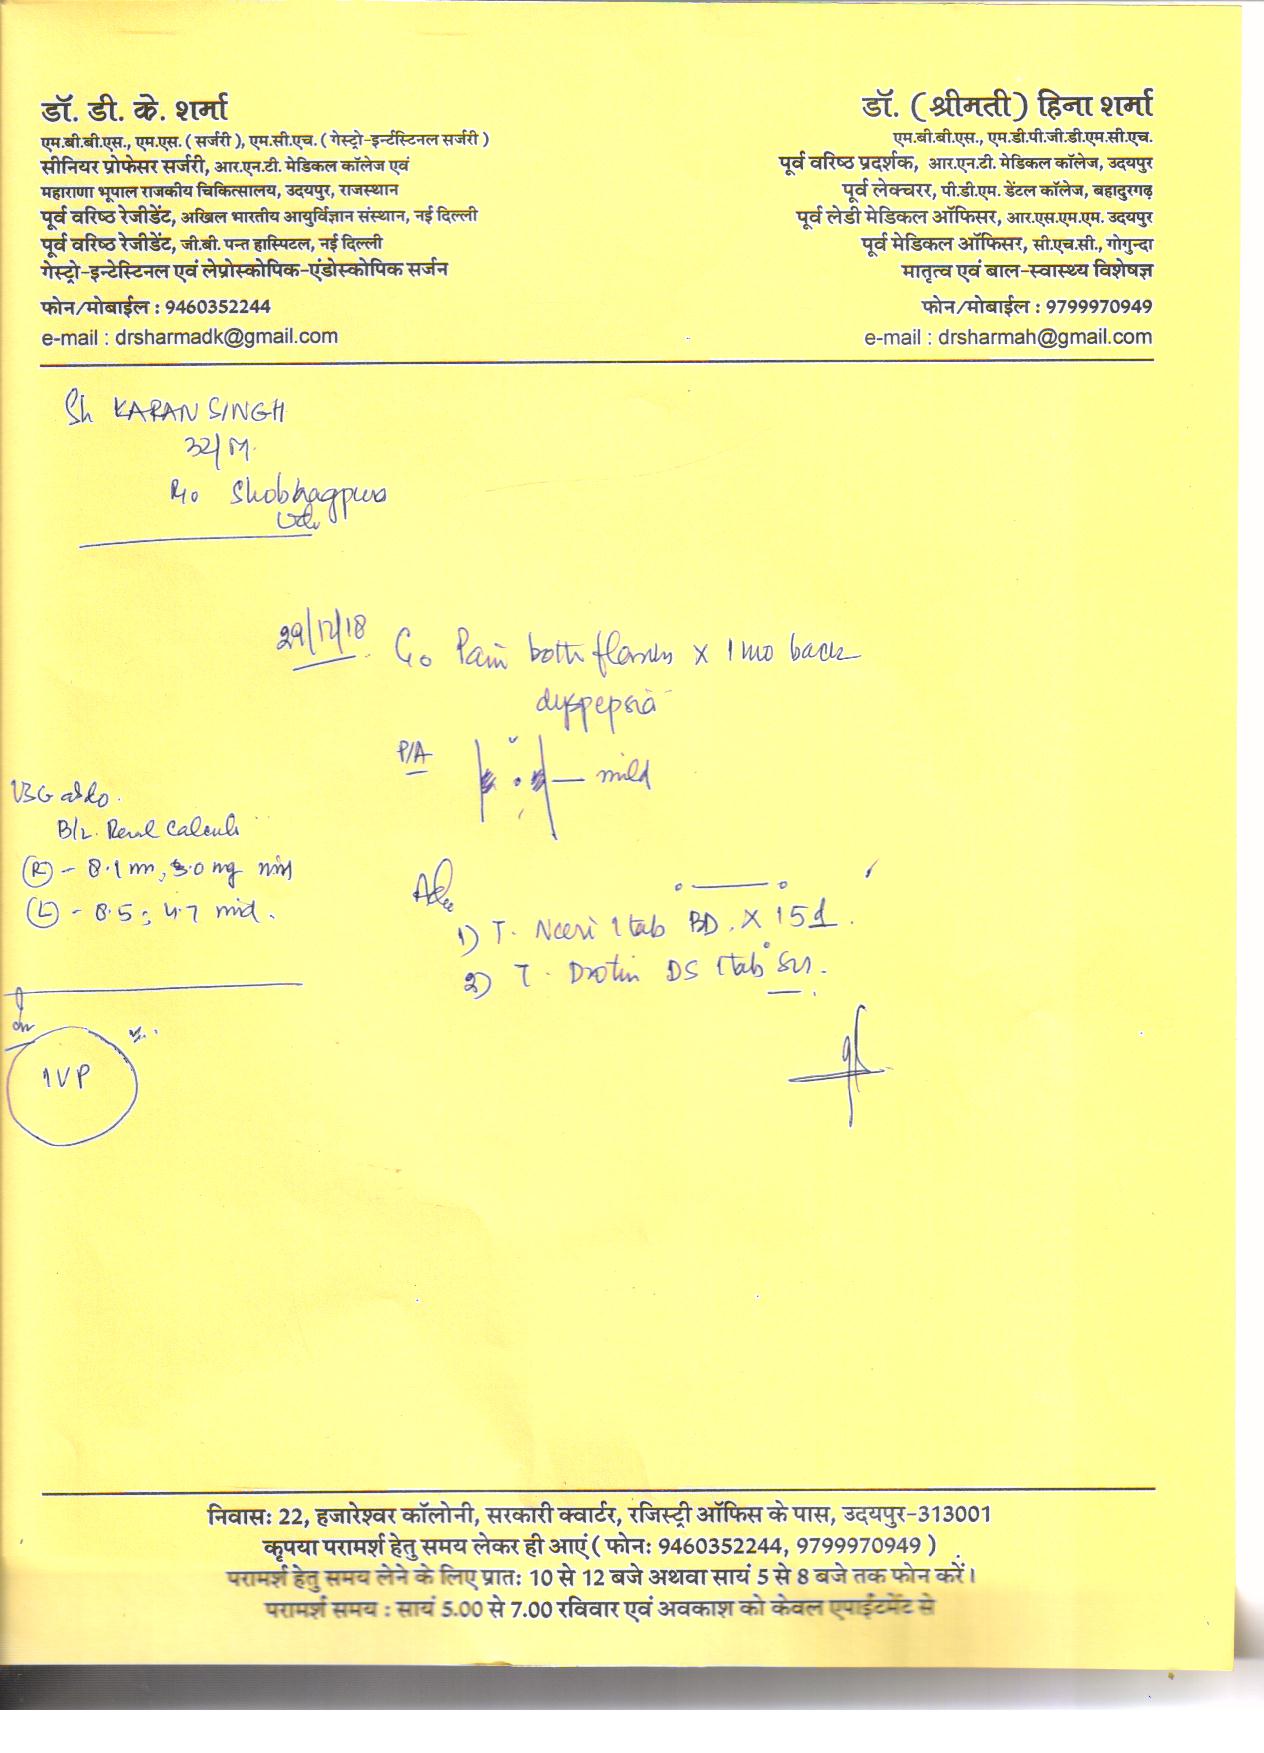 डॉ. डी. के. शर्मा
एम.बी.बी.एस., एम.एस. ( सर्जरी ), एम.सी.एच. ( गेस्ट्रो-इन्टेंस्टिनल सर्जरी )
सीनियर प्रोफेसर सर्जरी, आर.एन.टी. मेडिकल कॉलेज एवं
महाराणा भूपाल राजकीय चिकित्सालय, उदयपुर, राजस्थान
पूर्व वरिष्ठ रेजीडेंट, अखिल भारतीय आयुर्विज्ञान संस्थान, नई दिल्ली
पूर्व वरिष्ठ रेजीडेंट, जी.बी. पन्त हास्पिटल, नई दिल्ली
गेस्ट्रो-इन्टेस्टिनल एवं लेप्रोस्कोपिक-एंडोस्कोपिक सर्जन
फोन/मोबाईल : 9460352244
e-mail : drsharmadk@gmail.com
डॉ. (श्रीमती) हिना शर्मा
एम.बी.बी.एस., एम.डी.पी.जी.डी.एम.सी.एच.
पूर्व वरिष्ठ प्रदर्शक, आर.एन.टी. मेडिकल कॉलेज, उदयपुर
पूर्व लेक्चरर, पी.डी.एम. डेंटल कॉलेज, बहादुरगढ़
पूर्व लेडी मेडिकल ऑफिसर, आर.एस.एम.एम. उदयपुर
पूर्व मेडिकल ऑफिसर, सी.एच.सी., गोगुन्दा
मातृत्व एवं बाल-स्वास्थ्य विशेषज्ञ
फोन/मोबाईल : 9799970949
e-mail : drsharmah@gmail.com
Sh KARAN SINGH
32/M.
R/o Shobhagpura
29/12/18 C/o Pain both flanks x 1 mo back
dyspepsia
P/A
mild
USG abdo.
B/L. Renal Calculi
(R) - 8.1 mm,
(L) - 8.5, 4.7 mid.
IVP
Adv
1) T. Neeri 1 tab BD. X 15 d.
2) T. Drotin DS 1 tab SOS.
निवासः 22, हजारेश्वर कॉलोनी, सरकारी क्वार्टर, रजिस्ट्री ऑफिस के पास, उदयपुर-313001
कृपया परामर्श हेतु समय लेकर ही आएं ( फोनः 9460352244, 9799970949 )
परामर्श हेतु समय लेने के लिए प्रातः 10 से 12 बजे अथवा सायं 5 से 8 बजे तक फोन करें।
परामर्श समय : सायं 5.00 से 7.00 रविवार एवं अवकाश को केवल एपाईटमेंट से